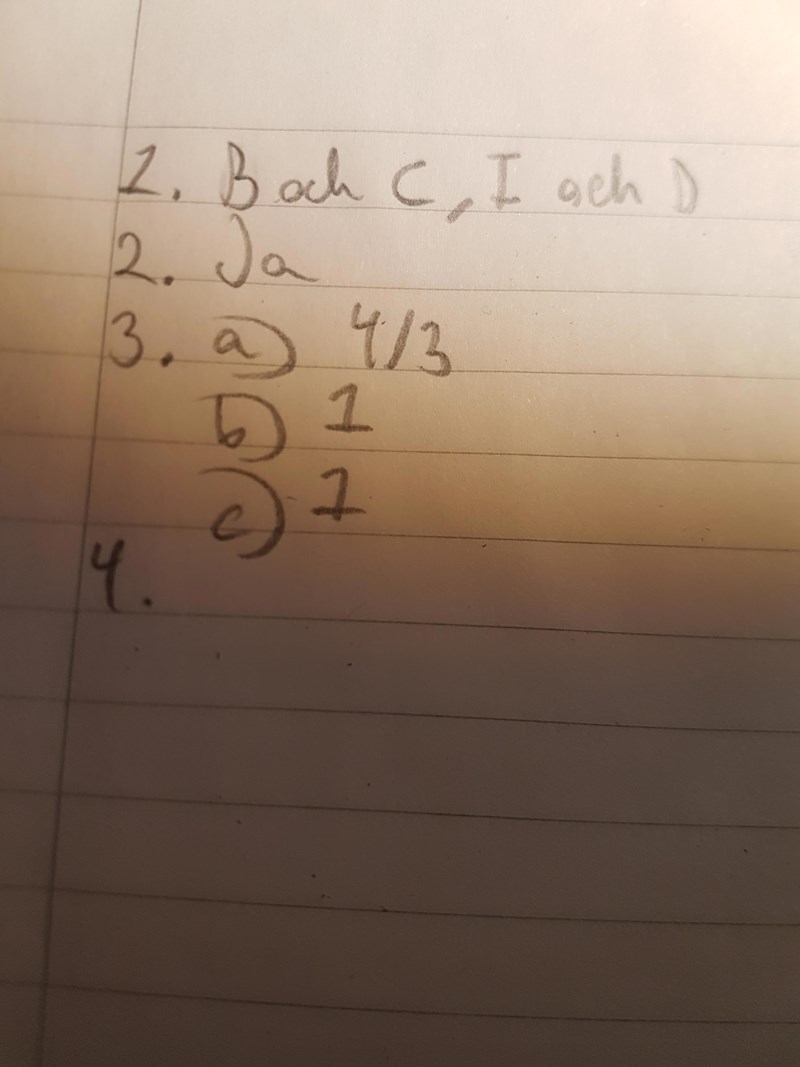 1. B och C, I och D
2. Ja
3. a) 4/3
b) 1
c) 1
4.